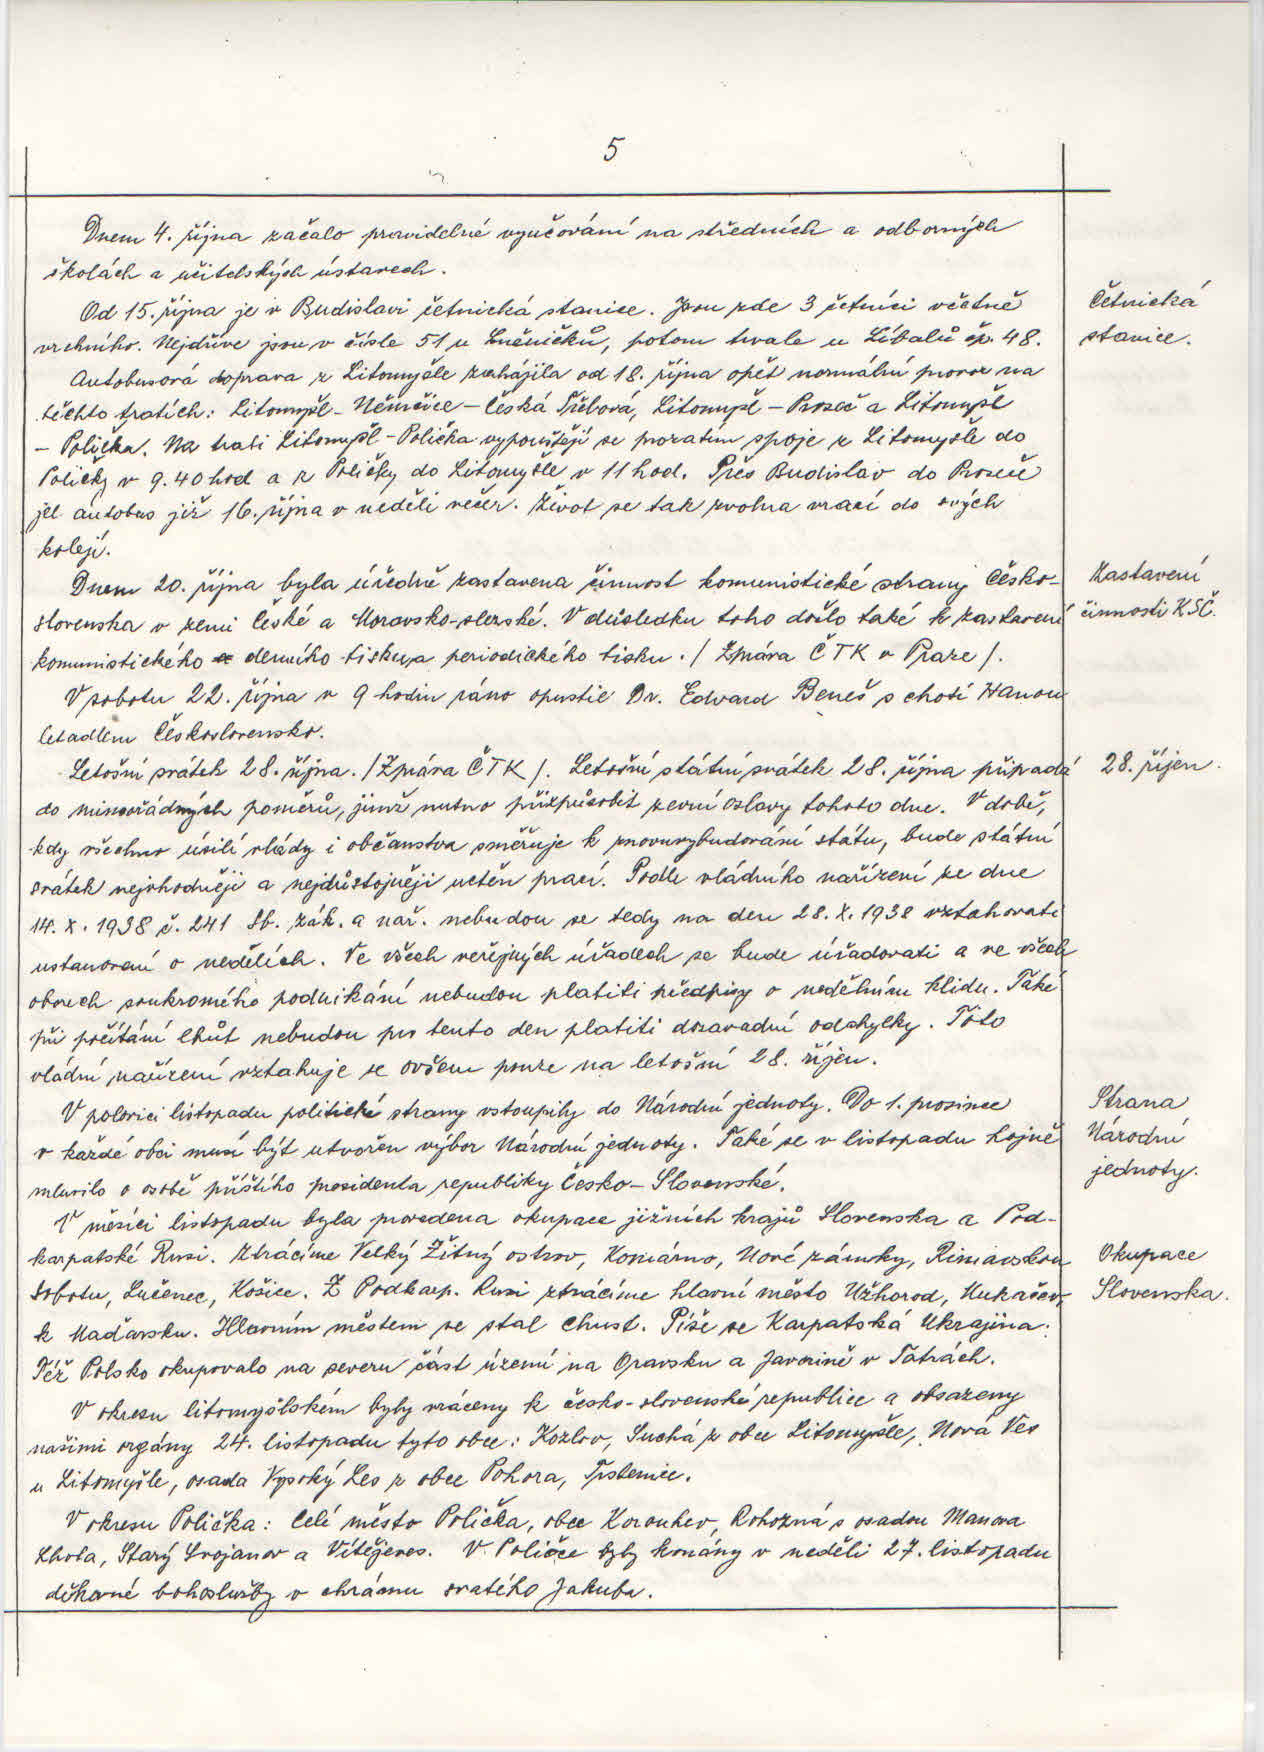 5
Dnem 4. října začalo pravidelné vyučování na středních a odborných
školách a učitelských ústavech.
Od 15. října je v Budislavi četnická stanice. Jsou zde 3 četníci včetně
Četnická
vrchního. Nejdříve jsou v čísle 51 u Lněničků, potom trvale u Líbalů čp. 48.
stanice.
Autobusová doprava z Litomyšle zahájila od 18. října opět normální provoz na
těchto tratích: Litomyšl - Němčice - Česká Třebová, Litomyšl - Proseč a Litomyšl
- Polička. Na trati Litomyšl - Polička vypouštějí se prozatím spoje z Litomyšle do
Poličky v 9.40 hod a z Poličky do Litomyšle v 11 hod. Přes Budislav do Proseče
jel autobus již 16. října v neděli večer. Život se tak zvolna vrací do svých
kolejí.
Dnem 20. října byla úředně zastavena činnost komunistické strany Česko-
Zastavení
slovenska v zemi České a Moravsko-slezské. V důsledku toho došlo také k zastavení
činnosti KSČ.
komunistického denního tisku a periodického tisku. / Zpráva ČTK v Praze /.
V sobotu 22. října v 9 hodin ráno opustil Dr. Edvard Beneš s chotí Hanou
letadlem Československo.
Letošní svátek 28. října. / Zpráva ČTK /. Letošní státní svátek 28. října připadá
28. říjen.
do mimořádných poměrů, jimž nutno přizpůsobit zevní oslavy tohoto dne. V době,
kdy všechno úsilí vlády i občanstva směřuje k znovuvybudování státu, bude státní
svátek nejvhodněji a nejdůstojněji uctěn prací. Podle vládního nařízení ze dne
14. X. 1938 č. 241 Sb. zák. a nař. nebudou se tedy na den 28. X. 1938 vztahovati
ustanovení o nedělích. Ve všech veřejných úřadech se bude úřadovati a ve všech
oborech soukromého podnikání nebudou platiti předpisy o nedělním klidu. Také
při počítání lhůt nebudou pro tento den platiti dosavadní odchylky. Toto
vládní nařízení vztahuje se ovšem pouze na letošní 28. říjen.
V polovici listopadu politické strany vstoupily do Národní jednoty. Do 1. prosince
Strana
v každé obci musí být utvořen výbor Národní jednoty. Také se v listopadu hojně
Národní
mluvilo o osobě příštího presidenta republiky Česko-Slovenské.
jednoty.
V měsíci listopadu byla provedena okupace jižních krajů Slovenska a Pod-
karpatské Rusi. Ztrácíme Velký Žitný ostrov, Komárno, Nové zámky, Rimavskou
Okupace
Sobotu, Lučenec, Košice. Z Podkarp. Rusi ztrácíme hlavní město Užhorod, Mukačev,
Slovenska.
k Maďarsku. Hlavním městem se stal Chust. Píše se Karpatská Ukrajina.
Též Polsko okupovalo na severu část území na Oravsku a Javorině v Tatrách.
V okresu litomyšlském byly vráceny k česko-slovenské republice a obsazeny
našimi orgány 24. listopadu tyto obce: Kozlov, Suchá z obce Litomyšle, Nová Ves
u Litomyšle, osada Vysoký Les z obce Pohora, Trstenice.
V okresu Polička: Celé město Polička, obce Korouhev, Rohozná s osadou Manova
Lhota, Starý Svojanov a Vítějeves. V Poličce byly konány v neděli 27. listopadu
děkovné bohoslužby v chrámu svatého Jakuba.